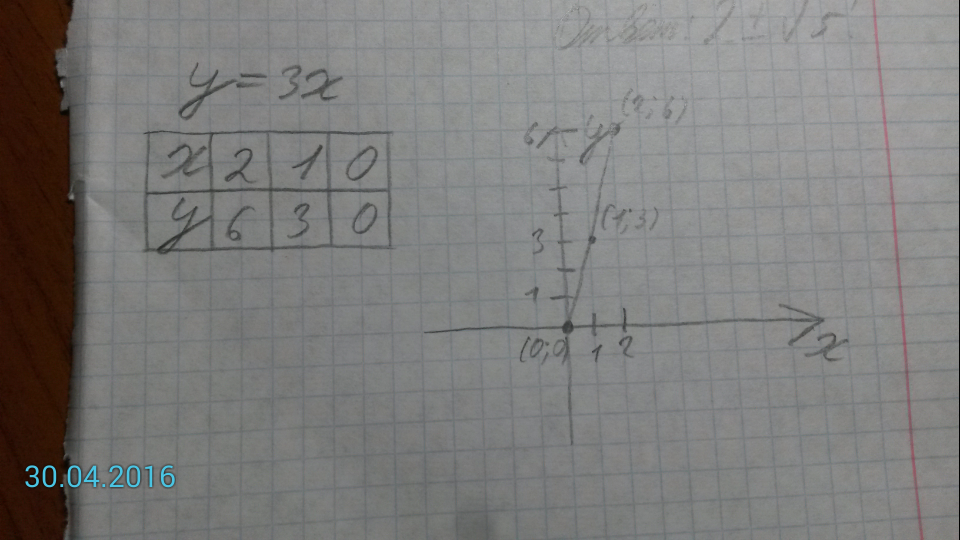 Ответ: 2 ± √5
y = 3x
x 2 1 0
y 6 3 0
6 y (2; 6)
3 (1; 3)
1
(0; 0) 1 2 x
30.04.2016